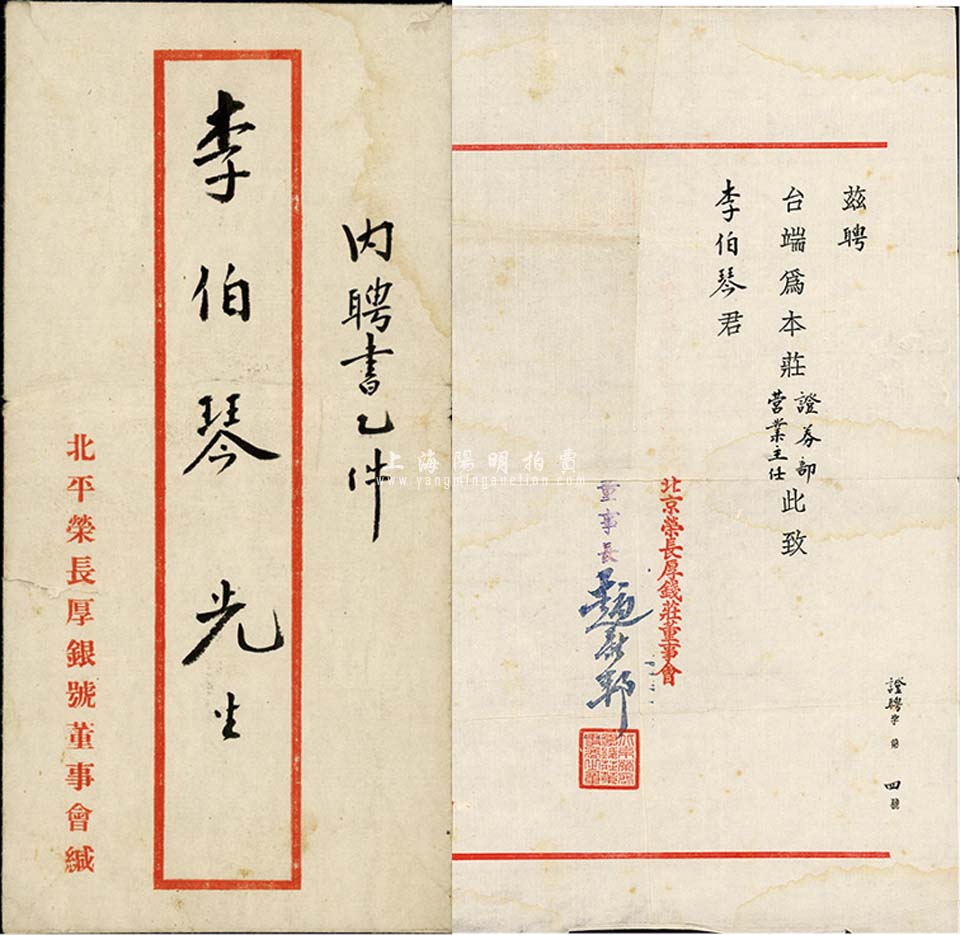 內聘書乙件
李伯琴先生
北平榮長厚銀號董事會緘
證聘字第四號
茲聘
台端爲本莊證券部營業主任此致
李伯琴君
北京榮長厚錢莊董事會
董事長
上海陽明拍賣
www.yangmingauction.com